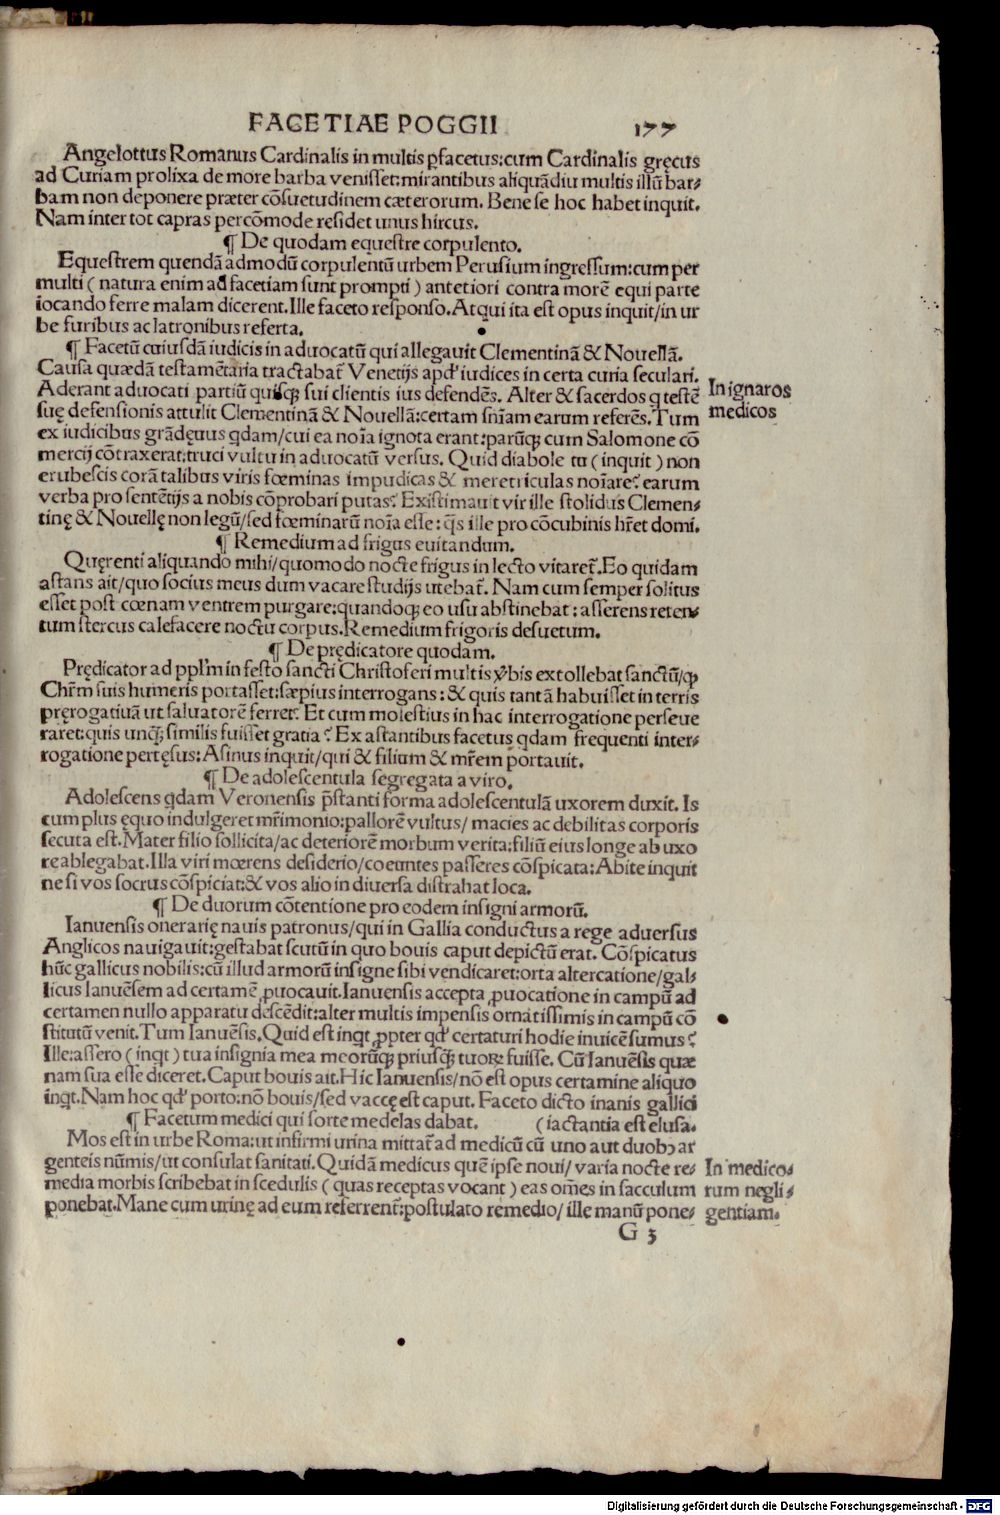 FACETIAE POGGII 177
Angelottus Romanus Cardinalis in multis pfacetus:cum Cardinalis gręcus
ad Curiam prolixa de more barba venisset:mirantibus aliquādiu multis illū bar⸗
bam non deponere præter cōsuetudinem cæterorum. Bene se hoc habet inquit.
Nam inter tot capras percōmode residet unus hircus.
¶ De quodam equestre corpulento.
Equestrem quendā admodū corpulentū urbem Perusium ingressum:cum per
multi ( natura enim ad facetiam sunt prompti ) anteriori contra morē equi parte
iocando ferre malam dicerent. Ille faceto responso. Atqui ita est opus inquit/in ur
be furibus ac latronibus referta.
¶ Facetū cuiusdā iudicis in aduocatū qui allegauit Clementinā & Nouellā.
Causa quædā testamētaria tractabat̄ Venetijs apd' iudices in certa curia seculari.
Aderant aduocati partiū quisq; sui clientis ius defendēs. Alter & sacerdos q testē
suę defensionis attulit Clementinā & Nouellā:certam sn̄iam earum referēs. Tum
ex iudicibus grādęuus qdam/cui ea noīa ignota erant:parūq; cum Salomone cō
mercij cōtraxerat:truci vultu in aduocatū versus. Quid diabole tu ( inquit ) non
erubescis corā talibus viris fœminas impudicas & meretriculas noīare? earum
verba pro sentētijs a nobis cōprobari putas? Existimauit vir ille stolidus Clemen⸗
tinę & Nouellę non legū/sed fœminarū noīa esse: q̄s ille pro cōcubinis hr̄et domi.
¶ Remedium ad frigus euitandum.
Quęrenti aliquando mihi/quomodo nocte frigus in lecto vitaret̄. Eo quidam
astans ait/quo socius meus dum vacare studijs utebat̄. Nam cum semper solitus
esset post cœnam ventrem purgare:quandoq; eo usu abstinebat: asserens reten⸗
tum stercus calefacere noctu corpus. Remedium frigoris desuetum.
¶ De prędicatore quodam.
Prędicator ad ppl'm in festo sancti Christoferi multis v̄bis extollebat sanctū/q;
Chr̄m suis humeris portasset:sæpius interrogans: & quis tantā habuisset in terris
pręrogatiuā ut saluatorē ferret? Et cum molestius in hac interrogatione perseue
raret:quis unq; similis fuisset gratia? Ex astantibus facetus qdam frequenti inter⸗
rogatione pertęsus: Asinus inquit/qui & filium & mr̄em portauit.
¶ De adolescentula segregata a viro.
Adolescens qdam Veronensis p̄stanti forma adolescentulā uxorem duxit. Is
cum plus ęquo indulgeret mr̄imonio:pallorē vultus/ macies ac debilitas corporis
secuta est. Mater filio sollicita/ac deteriorē morbum verita:filiū eius longe ab uxo
re ablegabat. Illa viri mœrens desiderio/coeuntes passeres cōspicata: Abite inquit
ne si vos socrus cōspiciat:& vos alio in diuersa distrahat loca.
¶ De duorum cōtentione pro eodem insigni armorū.
Ianuensis onerarię nauis patronus/qui in Gallia conductus a rege aduersus
Anglicos nauigauit:gestabat scutū in quo bouis caput depictū erat. Cōspicatus
hūc gallicus nobilis:cū illud armorū insigne sibi vendicaret:orta altercatione/gal⸗
licus Ianuēsem ad certamē ꝓuocauit. Ianuensis accepta ꝓuocatione in campū ad
certamen nullo apparatu descēdit:alter multis impensis ornatissimis in campū cō
stitutū venit. Tum Ianuēsis. Quid est inqt ꝓpter qd' certaturi hodie inuicē sumus?
Ille:assero ( inqt ) tua insignia mea meorūq; priusq; tuoꝝ fuisse. Cū Ianuēsis quæ
nam sua esse diceret. Caput bouis ait. Hic Ianuensis/nō est opus certamine aliquo
inqt. Nam hoc qd' porto:nō bouis/sed vaccę est caput. Faceto dicto inanis gallici
¶ Facetum medici qui sorte medelas dabat. (iactantia est elusa.
Mos est in urbe Roma:ut infirmi urina mittat̄ ad medicū cū uno aut duobꝰ ar
genteis nūmis/ut consulat sanitati. Quidā medicus quē ipse noui/ varia nocte re⸗
media morbis scribebat in scedulis ( quas receptas vocant ) eas om̄es in sacculum
ponebat. Mane cum urinę ad eum referrent̄:postulato remedio/ ille manū pone⸗
G 3
In ignaros
medicos
In medico⸗
rum negli⸗
gentiam.
Digitalisierung gefördert durch die Deutsche Forschungsgemeinschaft - DFG